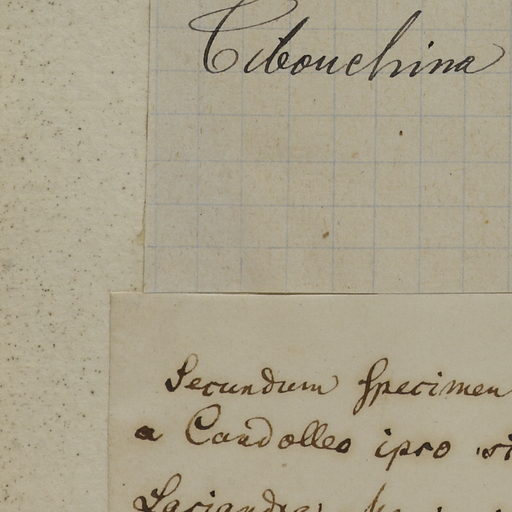 Tibouchina
Secundum specimen
a Candolleo ipso si
Lasiandra